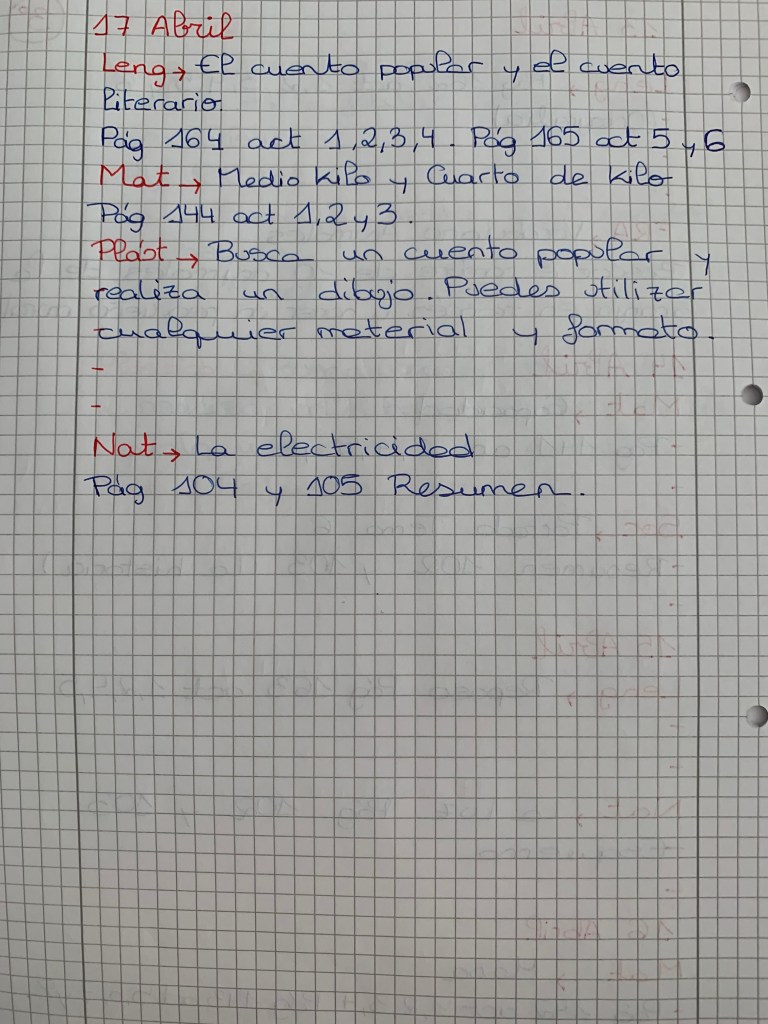 17 Abril
Leng → El cuento popular y el cuento
literario.
Pág 164 act 1,2,3,4. Pág 165 act 5 y 6
Mat → Medio kilo y Cuarto de kilo
Pág 144 act 1,2 y 3.
Plást → Busca un cuento popular y
realiza un dibujo. Puedes utilizar
cualquier material y formato.
-
-
Nat → La electricidad
Pág 104 y 105 Resumen.